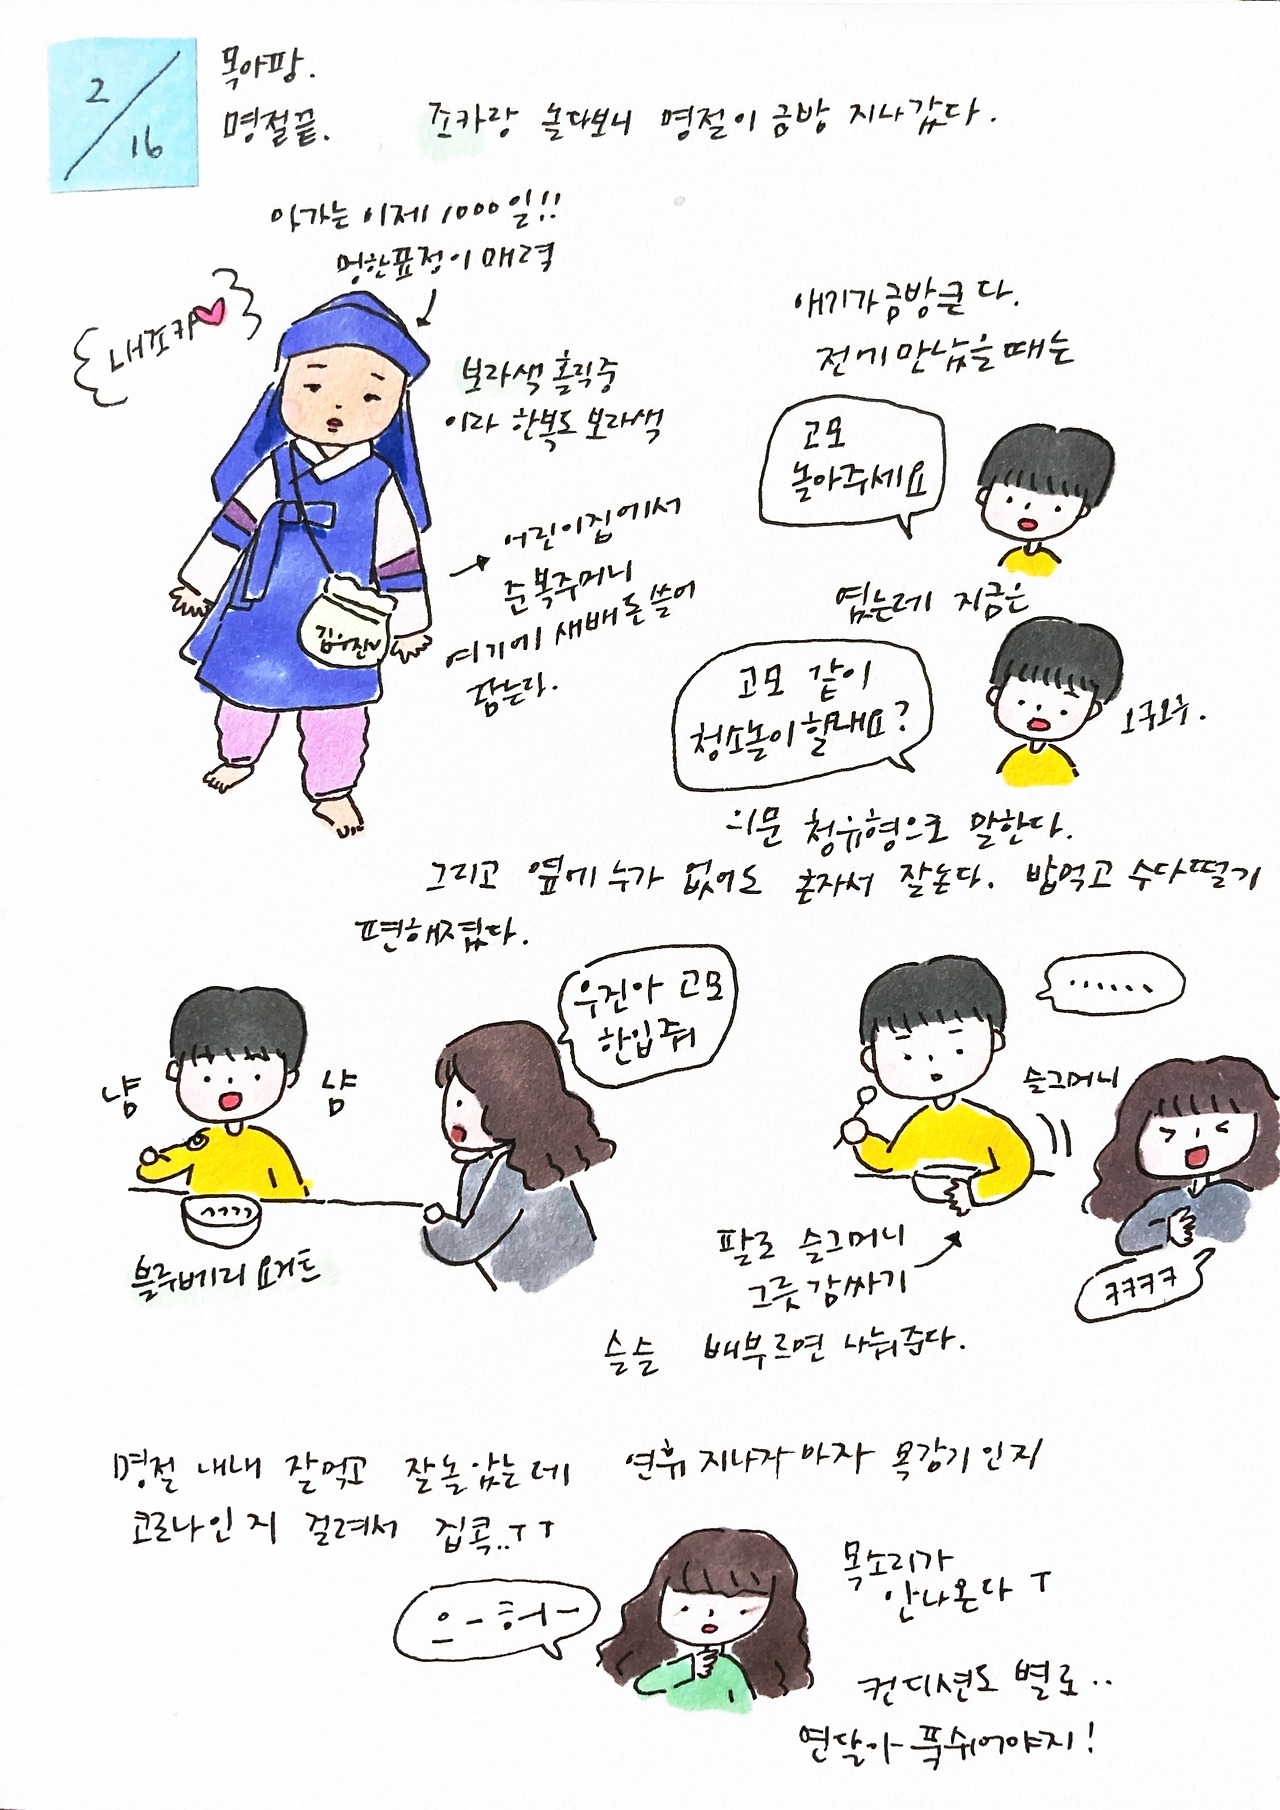 2/16
목아팡.
명절끝.
조카랑 놀다보니 명절이 금방 지나갔다.
아가는 이제 1000일!!
멍한표정이 매력
내조카♥
보라색 홀릭중
이라 한복도 보라색
어린이집에서
준 복주머니
여기에 새배돈 쓸어
담는다.
김우진
애기가 금방큰다.
전에 만났을 때는
고모
놀아주세요
였는데 지금은
고모 같이
청소놀이 할래요?
오구오구.
의문 청유형으로 말한다.
그리고 옆에 누가 없어도 혼자서 잘논다. 밥먹고 수다떨기
편해졌다.
냠
냠
우진아 고모
한입줘
블루베리 요거트
......
슬그머니
팔로 슬그머니
그릇 감싸기
ㅋㅋㅋㅋ
슬슬 배부르면 나눠준다.
명절 내내 잘먹고 잘놀았는데 연휴 지나자마자 목감기인지
코로나인지 걸려서 집콕..ㅜㅜ
으-허-
목소리가
안나온다 ㅜ
컨디션도 별로..
연달아 푹쉬어야지!